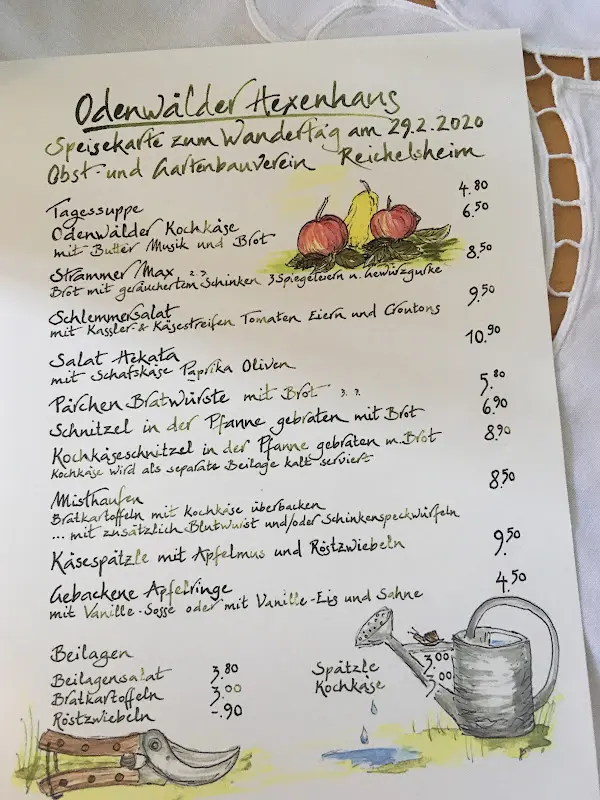 Odenwälder Hexenhaus
Speisekarte zum Wandertag am 29.2.2020
Obst- und Gartenbauverein Reichelsheim
Tagessuppe 4.80
Odenwälder Kochkäse 6.50
mit Butter Musik und Brot
Strammer Max 2.3. 8.50
Brot mit geräuchertem Schinken 3 Spiegeleiern u. Gewürzgurke
Schlemmersalat 9.50
mit Kassler- & Käsestreifen Tomaten Eiern und Croutons
Salat Hekata 10.90
mit Schafskäse Paprika Oliven
Pärchen Bratwürste mit Brot 5.80
Schnitzel in der Pfanne gebraten mit Brot 6.90
Kochkäseschnitzel in der Pfanne gebraten m. Brot 8.90
Kochkäse wird als separate Beilage kalt serviert
Misthaufen 8.50
Bratkartoffeln mit Kochkäse überbacken
... mit zusätzlich Blutwurst und/oder Schinkenspeckwürfeln
Käsespätzle mit Apfelmus und Röstzwiebeln 9.50
Gebackene Apfelringe 4.50
mit Vanille-Sosse oder mit Vanille-Eis und Sahne
Beilagen
Beilagensalat 3.80
Bratkartoffeln 3.00
Röstzwiebeln -.90
Spätzle 3.00
Kochkäse 3.00